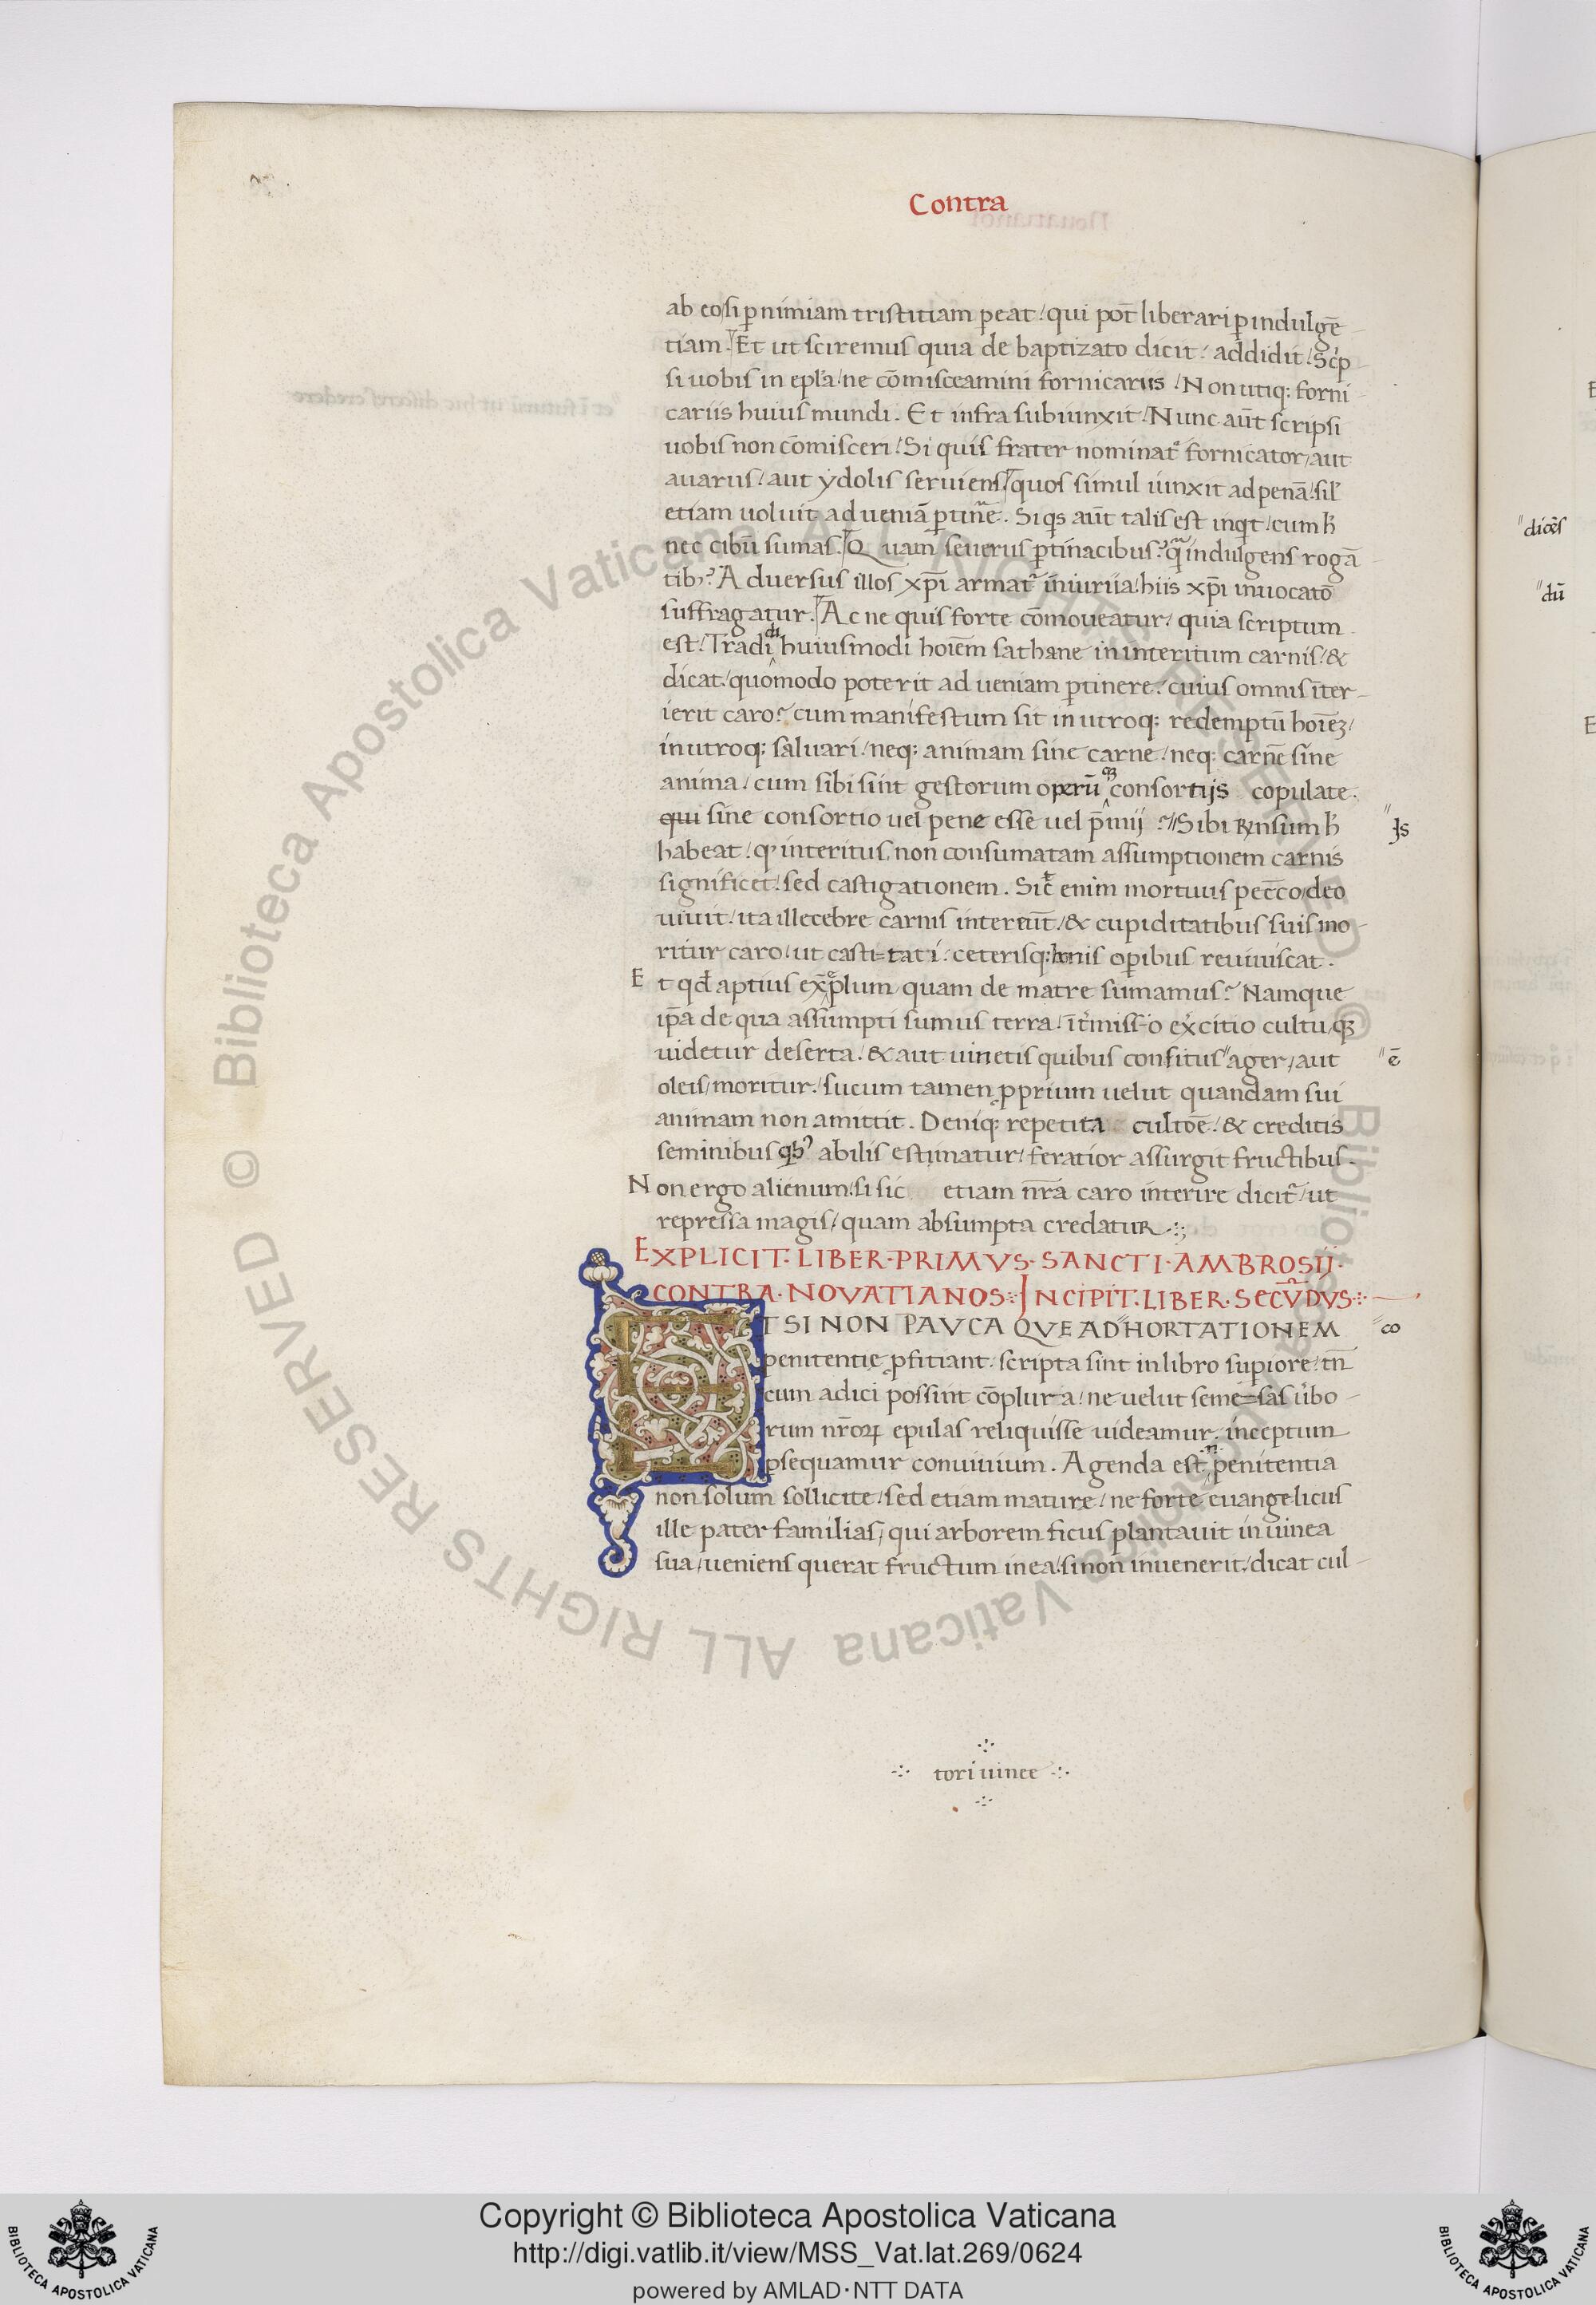 Contra
ab eo/si ꝑ nimiam tristitiam peat/ qui pot̄ liberari ꝑ indulgē
tiam. Et ut sciremus quia de baptizato dicit/ addidit/ Sc̓p
si uobis in ep̄la/ ne cōmisceamini fornicariis/ Non utiq; forni
cariis huius mundi. Et infra subiunxit/ Nunc aūt scripsi
uobis non cōmisceri/ Si quis frater nominat᷑ fornicator/ aut
auarus/ aut ydolis seruiens/ quos simul iunxit ad penā/ sil̓
etiam uoluit ad ueniā ꝑtin̄e. Siqs aūt talis est inqt/ cum h̄
nec cibū sumas. Quam seuerus ꝑtinacibus? q̄ indulgens rogā
tibꝰ? Aduersus illos xp̄i armat᷑ iniuria/ hiis xp̄i inuocatō
suffragatur. Ac ne quis forte cōmoueatur/ quia scriptum
est/ Tradi huiusmodi hoīem sathane in interitum carnis/ &
dicat/ quomodo poterit ad ueniam ꝑtinere/ cuius omnis īter
ierit caro? cum manifestum sit in utroq; redemptū hoīeꝫ/
in utroq; saluari/ neq; animam sine carne/ neq; carnē sine
anima/ cum sibi sint gestorum operū qꝫ consortijs copulate.
qui sine consortio uel pene esse uel p̄mij ? Sibi rn̄sum h̄
habeat/ qꝫ interitus non consumatam assumptionem carnis
significet/ sed castigationem. Sic̄ enim mortuus pecc̄o/ deo
uiuit/ ita illecebre carnis intereūt/ & cupiditatibus suis mo
ritur caro/ ut casti=tati/ ceterisq; bonis oꝑibus reuiuiscat.
Et qd̄ aptius exp̄lum quam de matre sumamus? Namque
ip̄a de qua assumpti sumus terra/ īt̓miss-o ex̓citio cultu/qꝫ
uidetur deserta/ & aut uinetis quibus consitus ager/ aut
oleis/ moritur/ sucum tamen ꝓprium uelut quandam sui
animam non amittit. Deniq; repetita cultōe/ & creditis
seminibus qbꝰ abilis estimatur/ feratior assurgit fructibus.
Non ergo alienum/ si sic etiam nr̄a caro interire dicit᷑/ ut
repressa magis/ quam absumpta credatur
EXPLICIT. LIBER. PRIMVS. SANCTI. AMBROSIJ.
CONTRA. NOVATIANOS. JNCIPIT. LIBER. SECVDVS
ETSI NON PAVCA QVE AD HORTATIONEM
penitentie ꝓfitiant/ scripta sint in libro suꝑiore/ tn̄
cum adici possint cōplura/ ne uelut seme=sas ūbo
rum nr̄oꝝ epulas reliquisse uideamur/ inceptum
ꝓsequamur conuiuium. Agenda est n̄ penitentia
non solum sollicite/ sed etiam mature/ ne forte euangelicus
ille pater familias/ qui arborem ficus plantauit in uinea
sua/ ueniens querat fructum in ea/ si non inuenerit/ dicat cul
ē
co
tori uinee
dicēs
dū
Biblioteca Apostolica Vaticana ALL RIGHTS RESERVED © Biblioteca Apostolica Vaticana ALL RIGHTS RESERVED ©
Copyright © Biblioteca Apostolica Vaticana
http://digi.vatlib.it/view/MSS_Vat.lat.269/0624
powered by AMLAD·NTT DATA
BIBLIOTECA APOSTOLICA VATICANA
BIBLIOTECA APOSTOLICA VATICANA